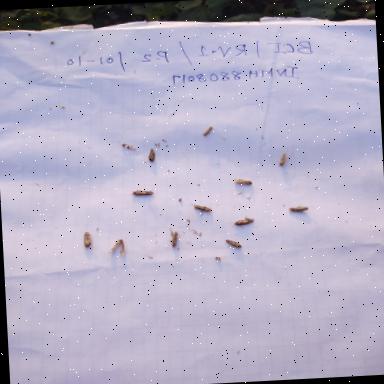 BCL / RV-1 / P2 / 01-10
TNMH 8808017